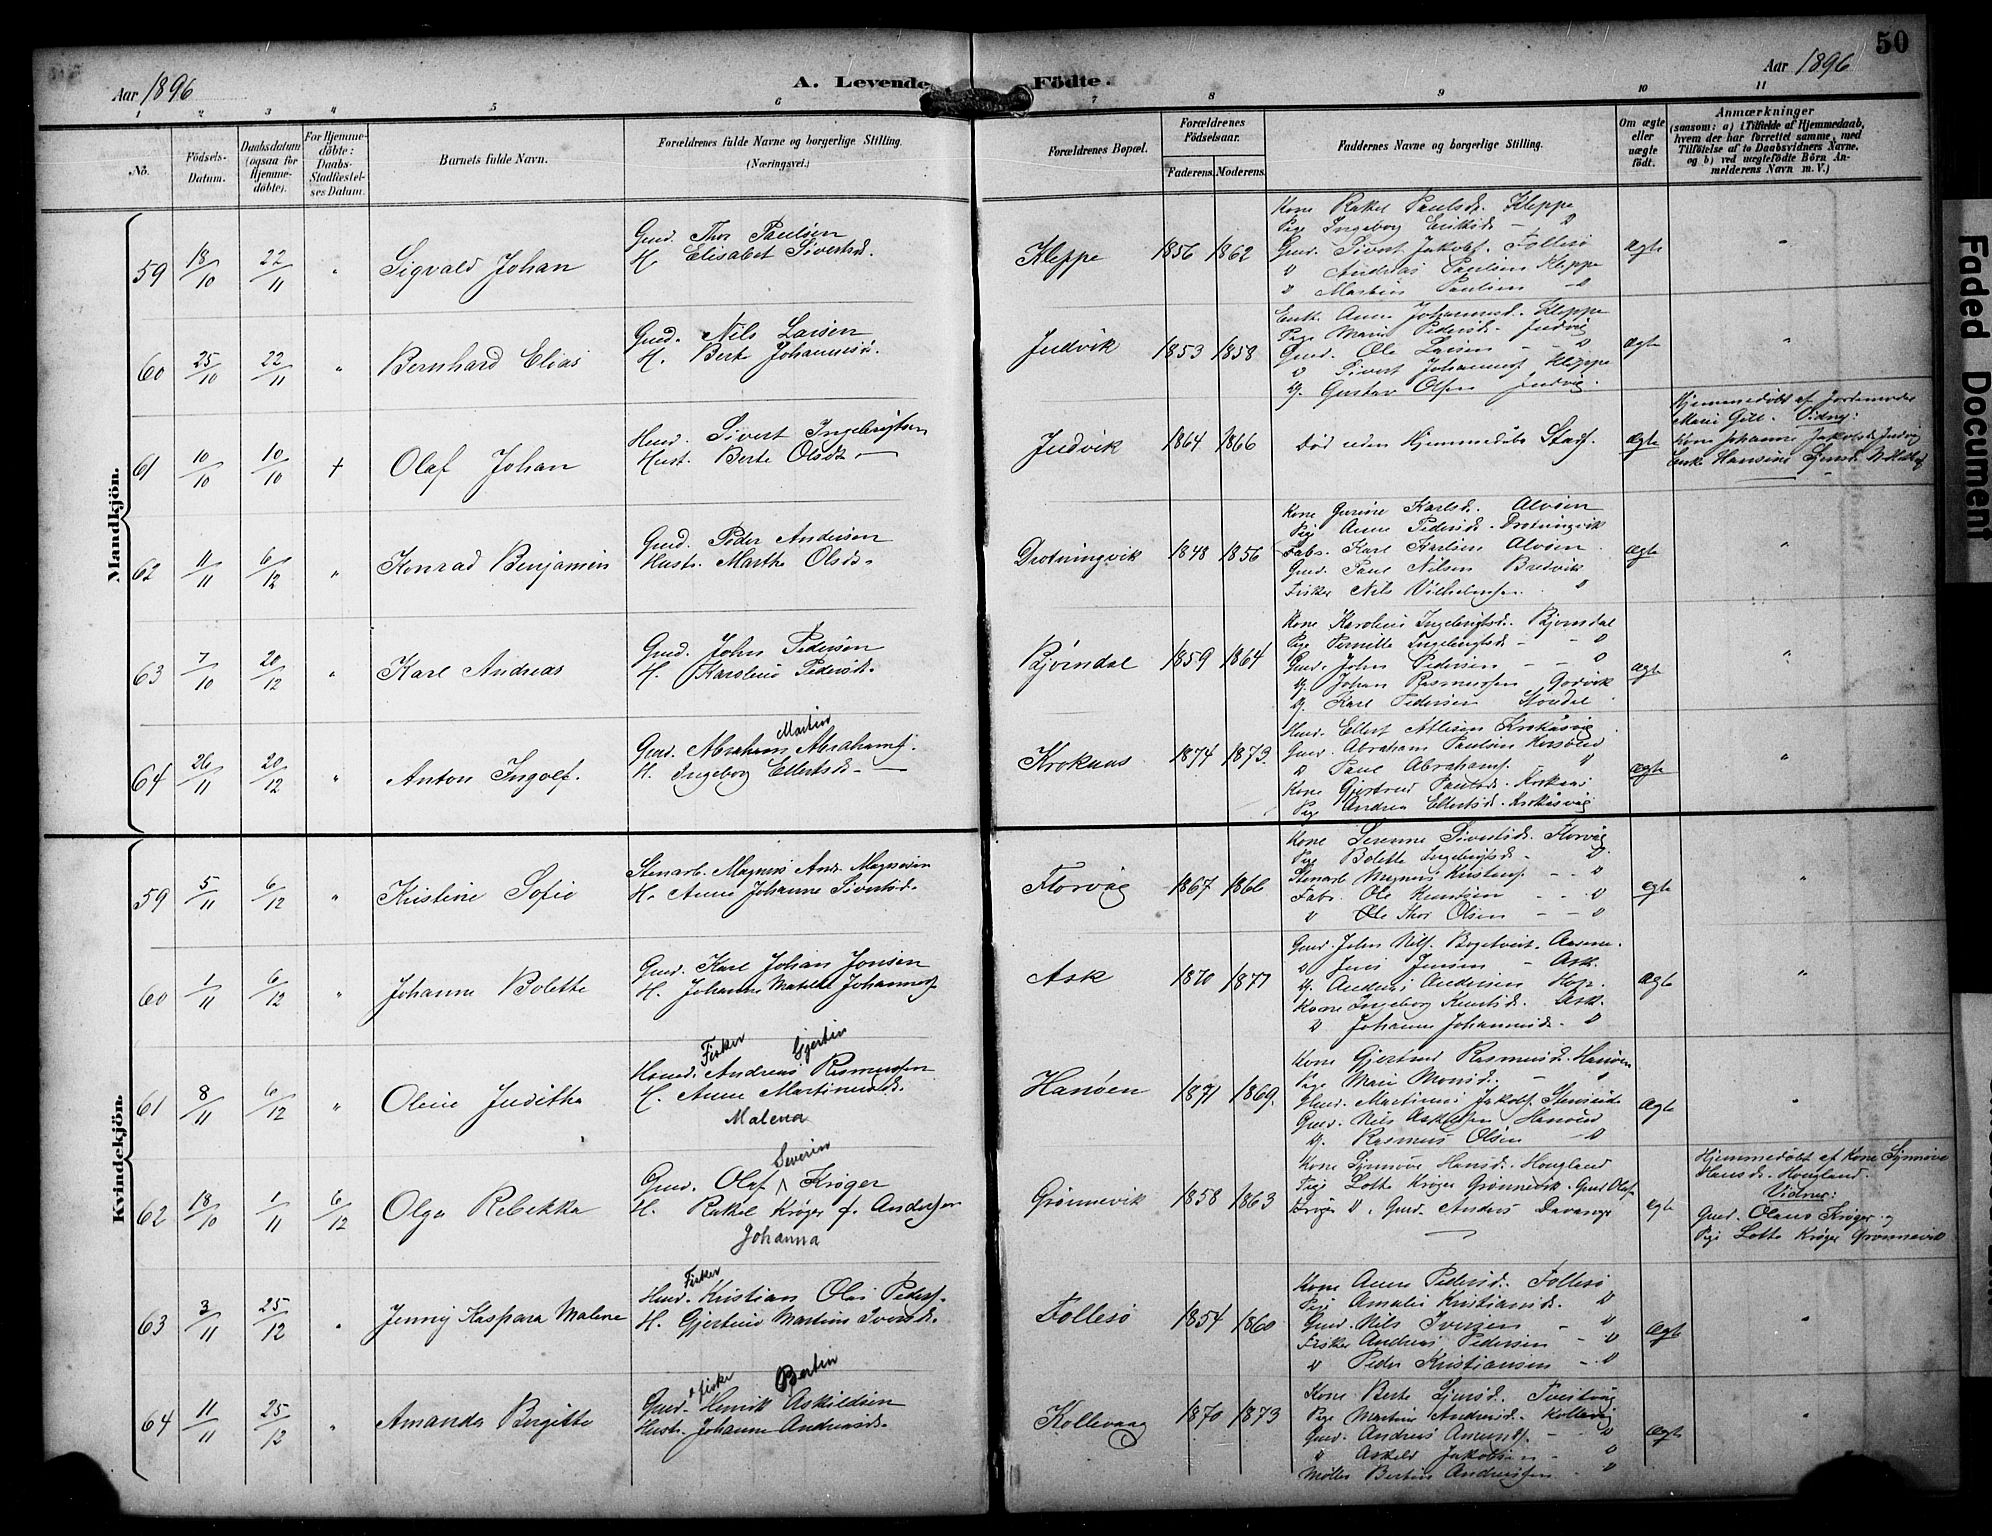 50
Aar 1896
A. Levende Födte.
Aar 1896
1 2 3 4 5 6 7 8 9 10 11
No.
Födsels-Datum.
Daabsdatum (ogsaa for Hjemmedöbte).
For Hjemmedöbte: Daabs-Stadfæstelses Datum.
Barnets fulde Navn.
Forældrenes fulde Navne og borgerlige Stilling.
(Næringsvei.)
Forældrenes Bopæl.
Forældrenes Födselsaar.
Faderens. Moderens.
Faddernes Navne og borgerlige Stilling.
Om ægte eller uægte födt.
Anmærkninger
(saasom: a) i Tilfælde af Hjemmedaab, hvem der har forrettet samme, med Tilföielse af to Daabsvidners Navne, og b) ved uægtefödte Börn Anmelderens Navn m. V.)
Mandkjön.
59 18/10 22/11 " Sigvald Johan
Gmd. Thor Paulsen
H. Elisabet Sivertsd.
Kleppe 1856 1862
Kone Rakel Paulsd. Kleppe
Pige Ingeborg Eriksd. - "
Gmd. Sivert Jakobs. Follesö
" Andreas Paulsen Kleppe
" Martin Paulsen - "
Ægte "
60 25/10 22/11 " Bernhard Elias
Gmd. Nils Larsen
H. Berte Johannesd.
Judvik 1853 1858
Enke Anne Johannesd. Kleppe
Pige Marie Pedersd. Judvig
Gmd. Ole Larsen - "
" Sivert Johannes. Kleppe
Ug. Gustav Olsen Judvig.
Ægte "
61 10/10 10/10 + Olaf Johan
Hmd. Sivert Ingebrigtsen
Hust. Berte Olsdr. -
Judvik 1864 1866
Död uden Hjemmedaabs Stadf.
Ægte
Hjemmedöbt af Jordemoder
Marie Gill. Vidner:
Kone Johanne Jakobsd. Judvig
Enke Hansine
62 11/11 6/12 " Konrad Benjamin
Gmd. Peder Andersen
Hustr. Marthe Olsdr.
Drotningvik 1848 1856
Kone Gurine Karlsd. Alvöen
Pige Anne Pedersd. Drotningvik
Fabr. Karl Karlsen Alvöen
Gmd. Paul Nilsen Bredvik
Fisker Nils Vilhelmsen "
Ægte "
63 7/10 20/12 " Karl Andreas
Gmd. John Pedersen
H. Karoline Pedersd.
Björndal 1859 1864
Kone Karoline Ingebrigtsd. Björndal
Pige Pernille Ingebrigtsd. - "
Gmd. John Pedersen - - "
Ug. Johan Rasmussen Godvik
Ug. Karl Pedersen
Ægte "
64 26/11 20/12 " Anton Ingolf.
Martin
Gmd. Abraham Abrahams.
H. Ingeborg Ellertsd. -
Kroknes 1874 1873.
Hmd. Ellert Atlesen Krokåsvig
Gmd. Abraham Paulsen
" Paul Abrahams. "
Kone Gjertrud Paulsd. Kroknes
Pige Andrea Ellertsd. Krokåsvig
Ægte "
Kvindekjön.
59 5/11 6/12 " Kristine Sofie
Stenarb. Magnus And. Magnesen
H. Anne Johanne Sivertsd.
Florvåg 1867 1866
Kone Serenne Sivertsd. Florvåg
Pige Bolette Ingebrigtsd. - "
Stenarb. Magnus Kristens. - - "
Fabr. Ole Knudsen - - "
" Ole Thor Olsen - - "
ægte "
60 1/11 6/12 " Johanne Bolette
Gmd. Karl Johan Jonsen
H. Johanne Matilde Johannesd.
Ask 1870 1871
Gmd. John Nils. Bogetveit. Aasene.
" Jens Jensen - Ask.
Ug. Andreas Andersen Hop.
Kone Ingeborg Knutsd. Ask.
" Johanne Johannesd. - "
Ægte "
61 8/11 6/12 " Oline Juditha
Fisker Gjertin
Hmd. Andreas Rasmussen
H. Anne Martinusd.
Malena
Hanöen 1871 1869.
Kone Gjertrud Rasmusd. Hanöen
Pige Marie Monsd. - "
Hmd. Martinus Jakobs. Stenseide
Gmd. Nils Askildsen Hanöen
Ug. Rasmus Olsen - "
Ægte "
62 18/10 1/11 6/12 Olga Rebekka
Severin
Gmd. Olaf ^ Kröger
H. Rakel Kröger f. Andersen
Johanna
Grönnevik 1858 1863
Kone Synnöve Hansd. Hougland
Pige Lotte Kröger Grönnevik. Gmd. Olaf
Kröger ". Gmd. Anders Davanger
ægte
Hjemmedöbt af Kone Synnöve
Hansd. Hougland.
Vidner:
Gmd. Olaus Kröger og
Pige Lotte Kröger Grönnevik
63 3/11 25/12 " Jenny Kaspara Malene
Fisker
Hmd. Kristian Olai Peders.
H. Gjertine Martine Iversd.
Follesö 1854 1860
Kone Anne Pedersd. Follesö
Pige Amalie Kristiansd. "
Gmd. Nils Iversen - "
Fisker Andreas Pedersen - "
" Peder Kristiansen - "
Ægte "
64 11/11 25/12 " Amanda Birgitte
+ fisker Bertin
Gmd. Henrik Askildsen
Hustr. Johanne Andersd.
Kollevaag 1870 1873
Kone Berte Sjursd. Tveitvåg
Pige Martine Andersd. Kollevåg
Gmd. Andreas Amunds. - "
" Askild Jakobsen - "
Möller Bertin Andreassen - "
Ægte "
Faded Document